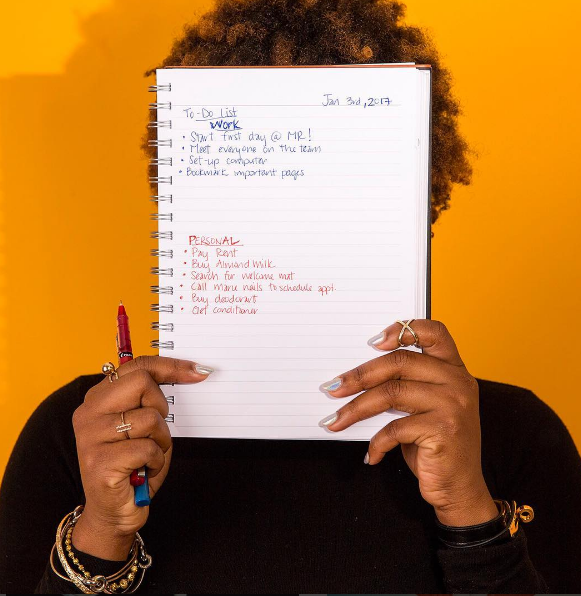 Jan 3rd, 2017
To-Do List
Work
• Start first day @ MR!
• Meet everyone on the team
• Set-up computer
• Bookmark important pages
PERSONAL
• Pay Rent
• Buy Almond Milk
• Search for welcome mat
• Call Marie nails to schedule appt.
• Buy deodorant
• Get conditioner